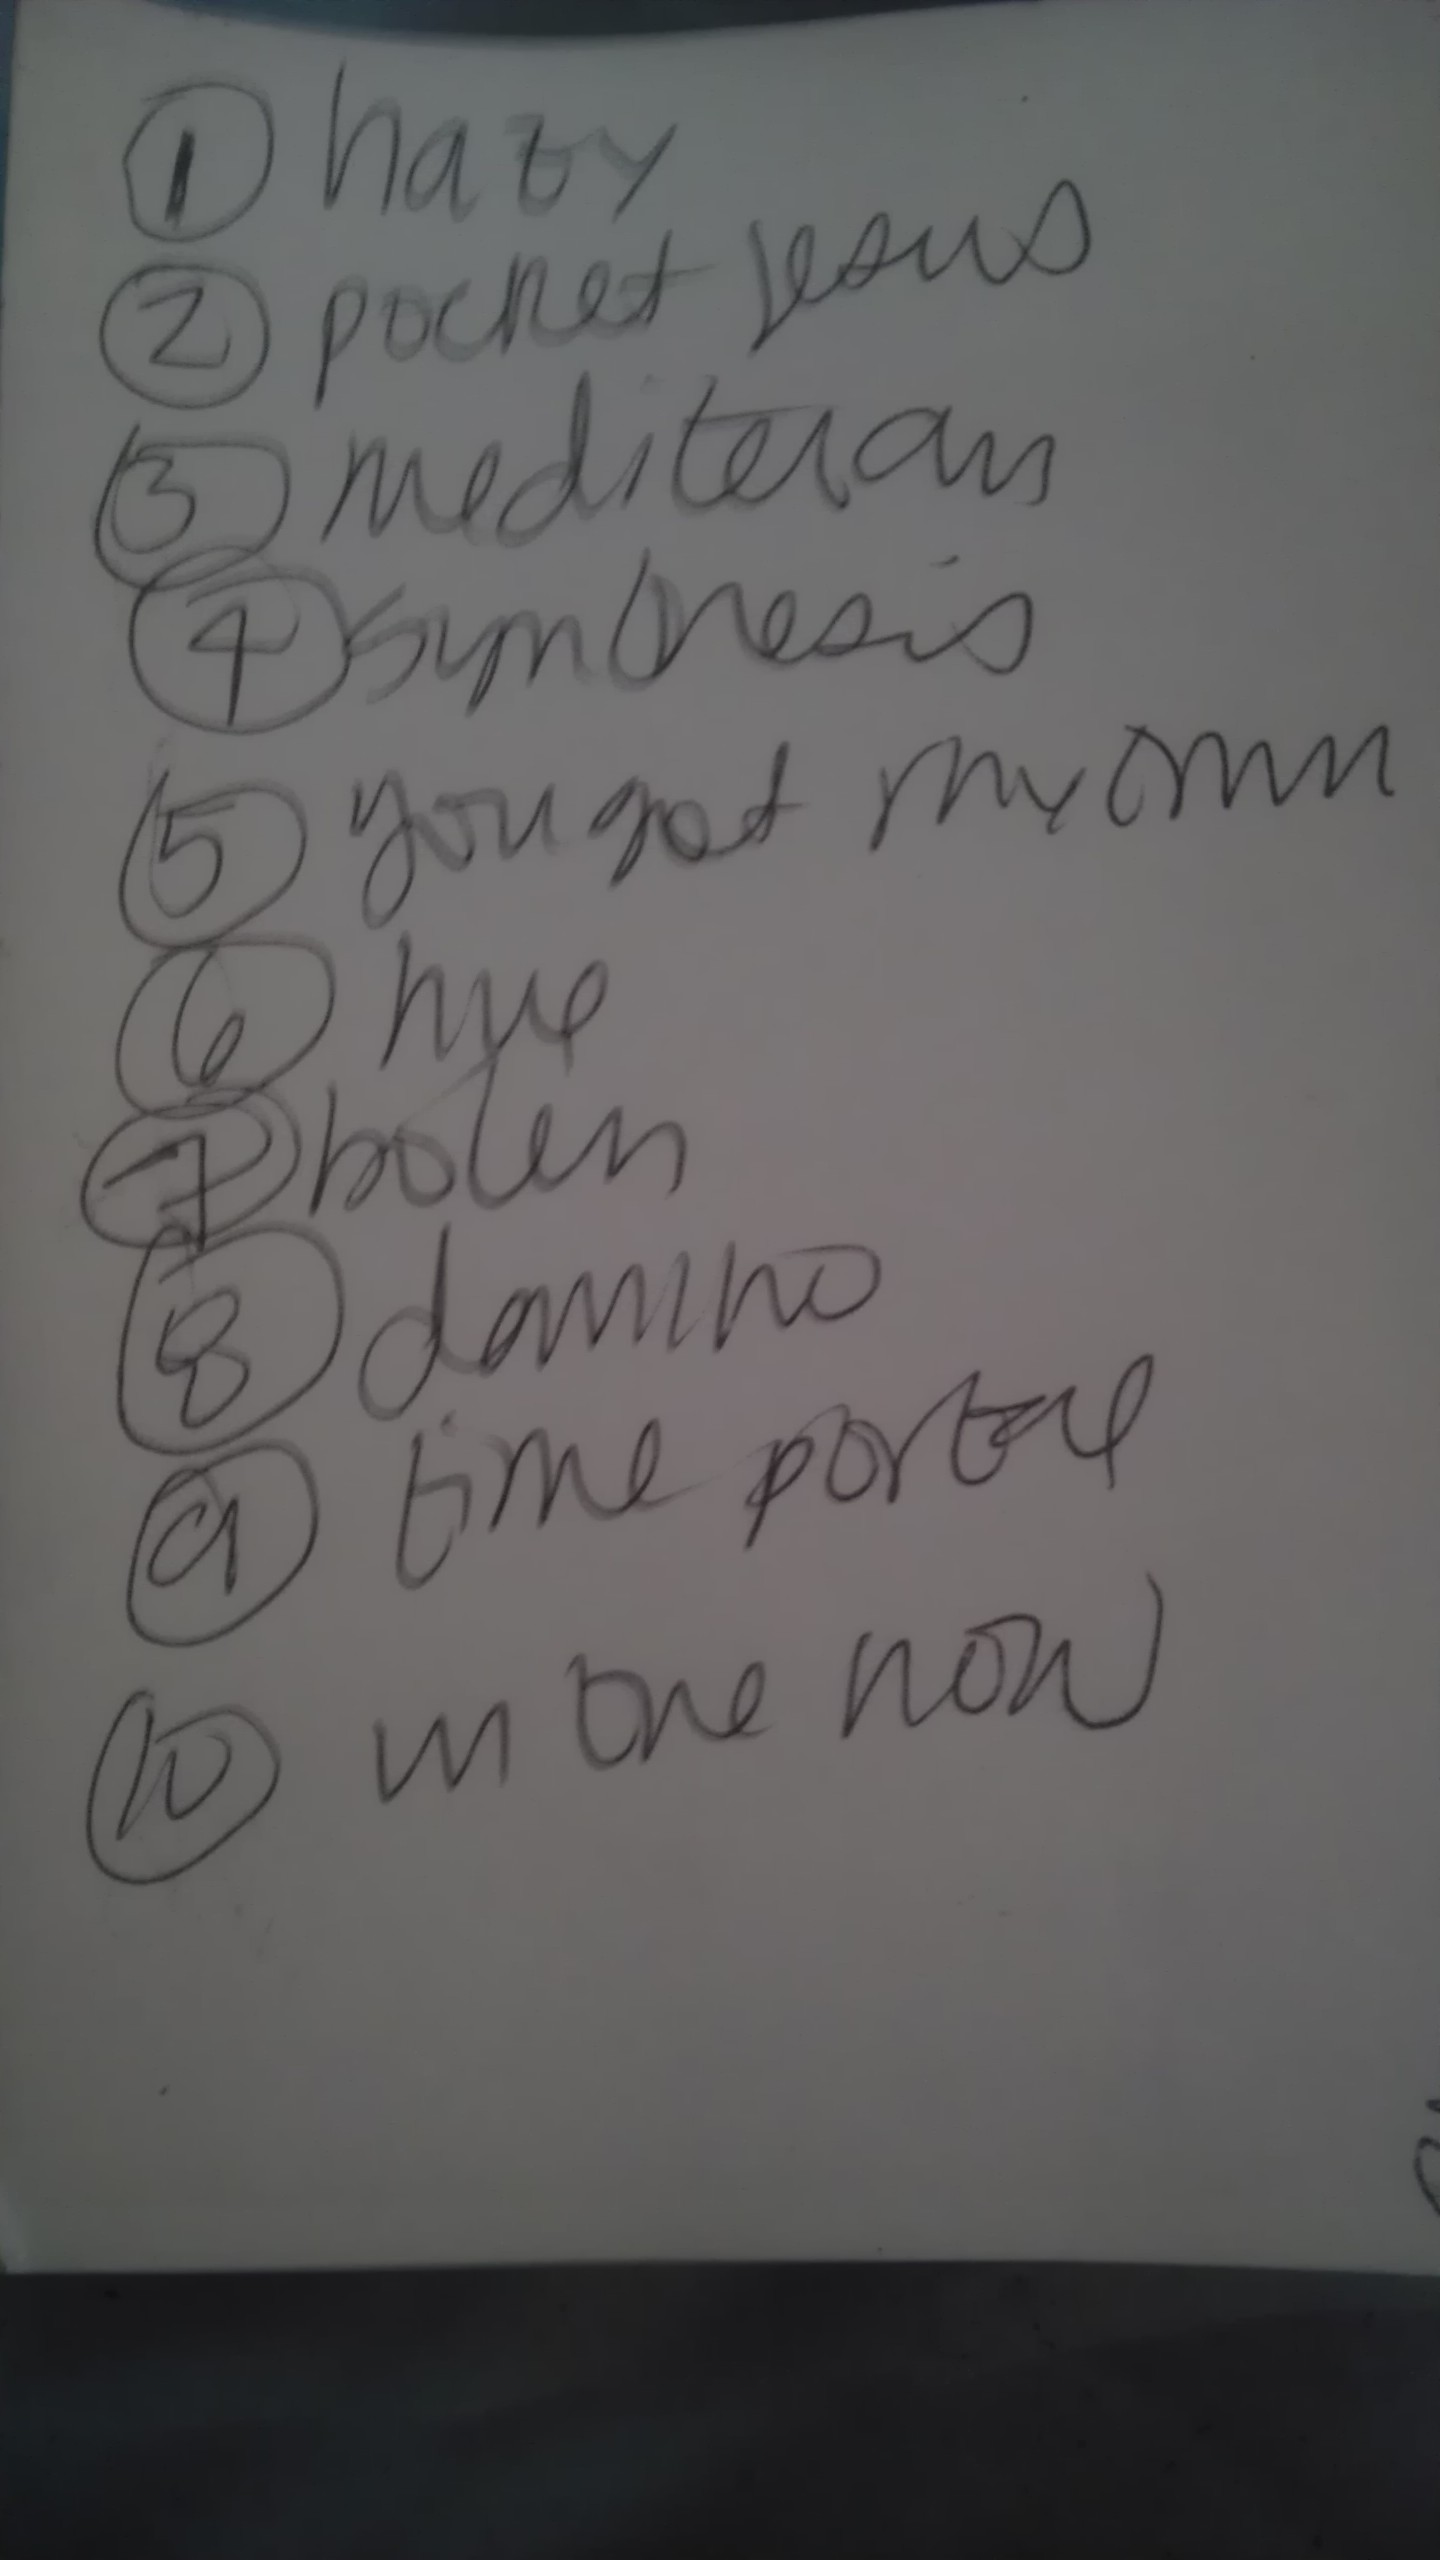 1 hazy
2 pocket jesus
3 mediteran
4 synthesis
5 you got my own
6 hue
7 bolen
8 domino
9 time portal
10 in the now